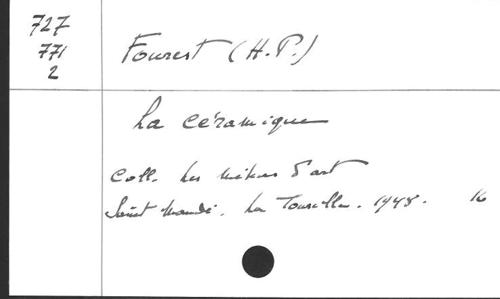 727
771
2
Fourest (H.P.)
La céramique
Coll. Les métiers d'art
Saint Mandé. La Tourelle. 1948. 16